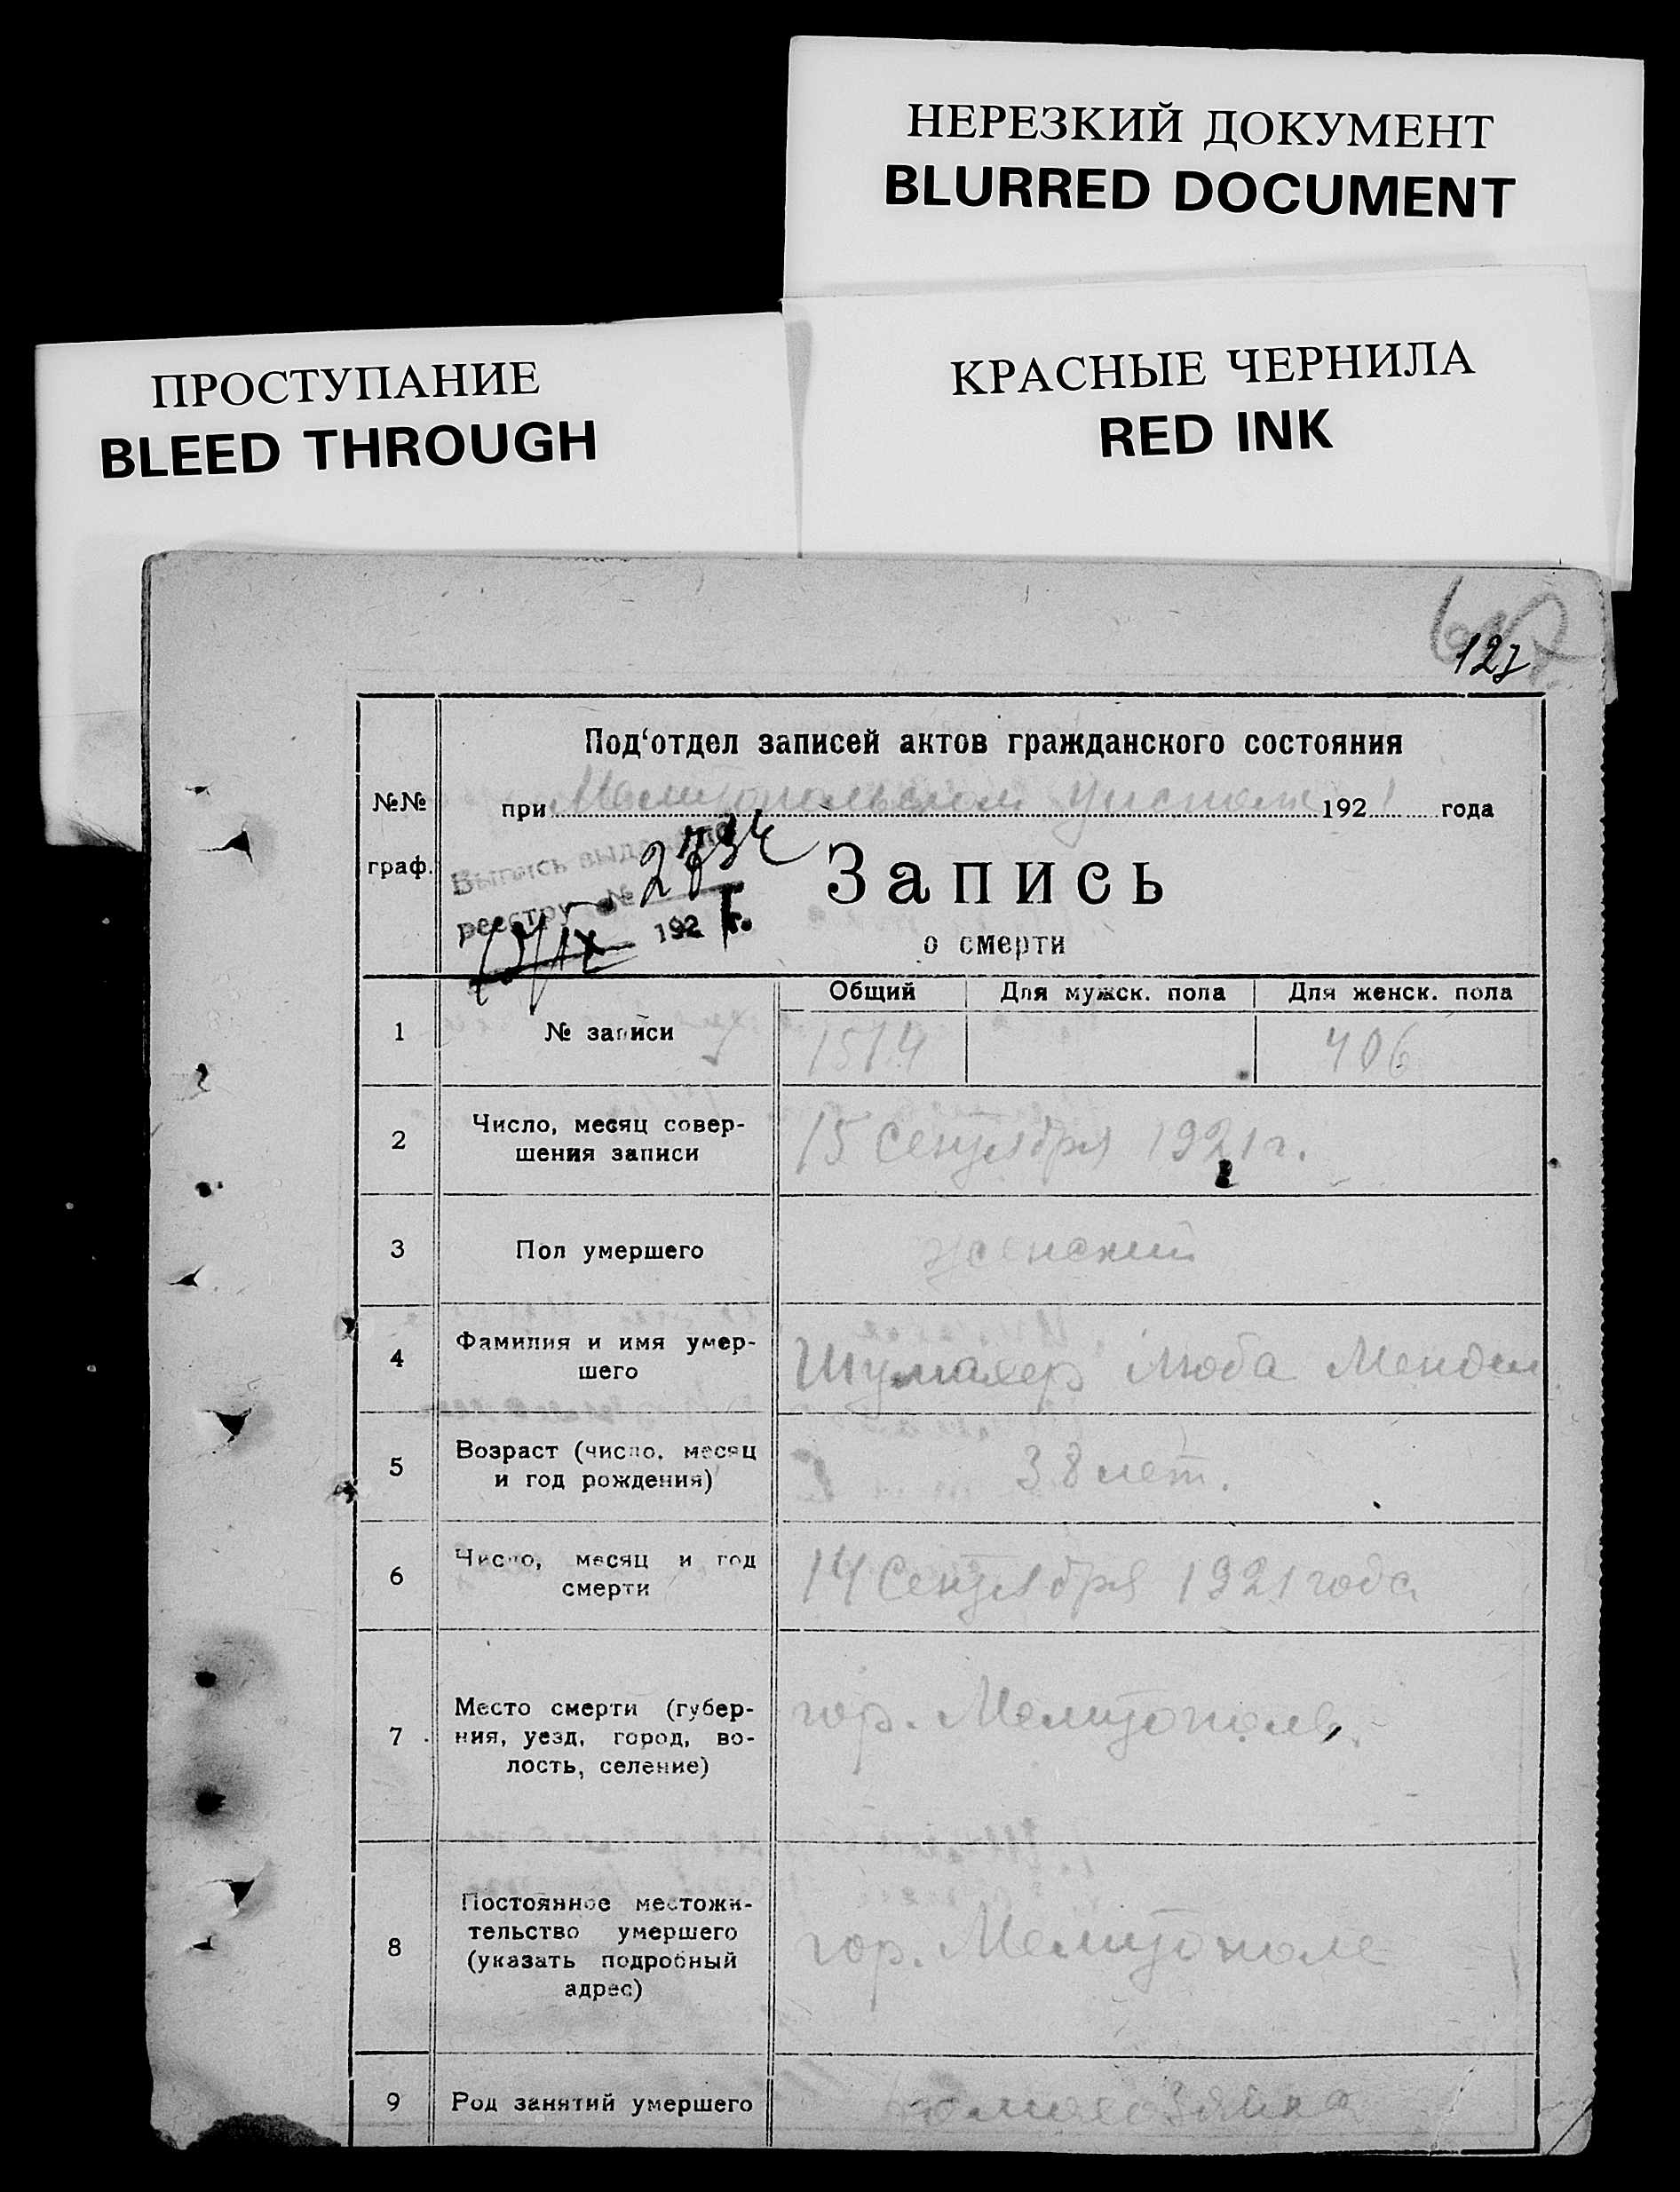 НЕРЕЗКИЙ ДОКУМЕНТ
BLURRED DOCUMENT
ПРОСТУПАНИЕ
BLEED THROUGH
КРАСНЫЕ ЧЕРНИЛА
RED INK
127
Под'отдел записей актов гражданского состояния
№№
граф.
при Мелитопольском 1921 года
Выпись выдана по
реестру № 2834
192 г.
Запись
о смерти
Общий Для мужск. пола Для женск. пола
1 № записи 1514 406
2 Число, месяц совер-
шения записи
15 Сентября 1921 г.
3 Пол умершего женский
4 Фамилия и имя умер-
шего
Шумахер Люба Мендел
5 Возраст (число, месяц
и год рождения)
38 лет.
6 Число, месяц и год
смерти
14 Сентября 1921 года
7 Место смерти (губер-
ния, уезд, город, во-
лость, селение)
гор. Мелитополь
8 Постоянное местожи-
тельство умершего
(указать подробный
адрес)
гор. Мелитополе
9 Род занятий умершего домохозяйка